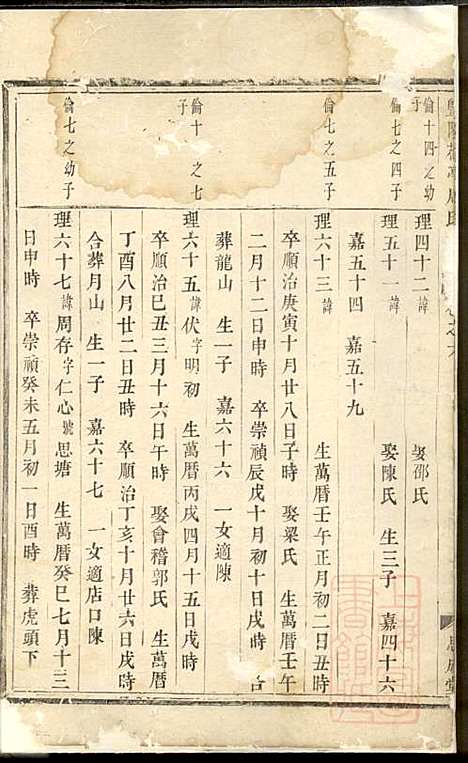 倫十四之幼子
理四十二 諱 娶邵氏
倫七之四子
理五十一 諱 娶陳氏 生三子 嘉四十六
嘉五十四 嘉五十九
倫七之五子
理六十三 諱 生萬曆壬午正月初二日丑時
卒順治庚寅十月廿八日子時 娶梁氏 生萬曆壬午
二月十二日申時 卒崇禎辰戊十月初十日戌時 合
葬龍山 生一子 嘉六十六 一女適陳
倫十 之七子
理六十五 諱伏 字明初 生萬曆丙戌四月十五日戌時
卒順治己丑三月十六日午時 娶會稽郭氏 生萬曆
丁酉八月廿二日丑時 卒順治丁亥十月廿六日戌時
合葬月山 生一子 嘉六十七 一女適店口陳
倫七之幼子
理六十七 諱周存 字仁心 號思塘 生萬曆癸巳七月十三
日申時 卒崇禎癸未五月初一日酉時 葬虎頭下